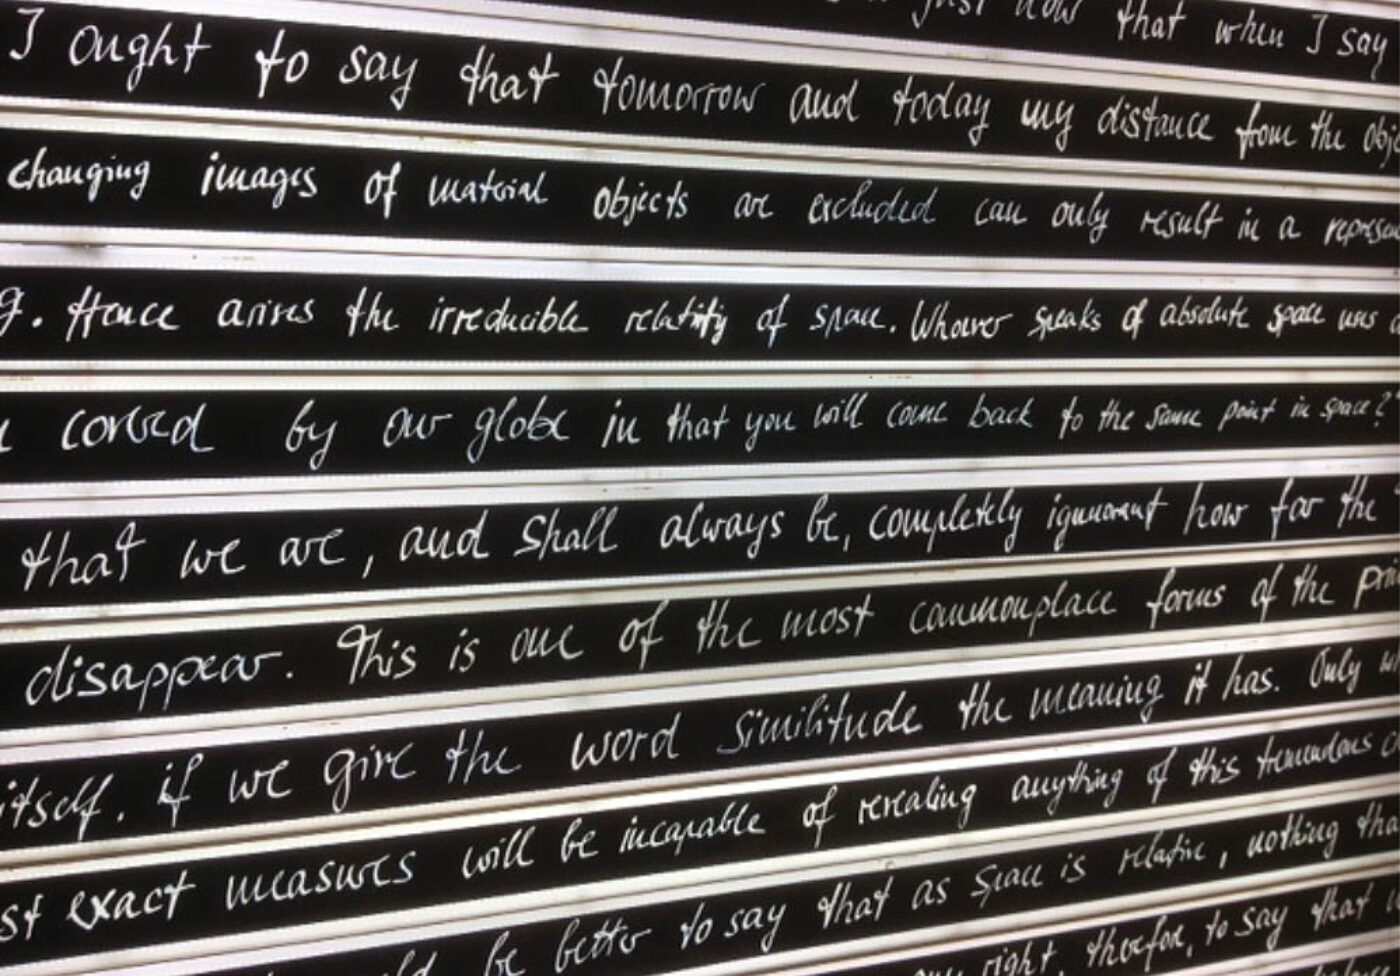 just now that when I say
I ought to say that tomorrow and today my distance from the
changing images of material objects are excluded can only result in a
g. Hence arises the irreducible relativity of space. Whoever speaks of absolute space uses
covered by our globe in that you will come back to the same point in space?
that we are, and shall always be, completely ignorant how far the
disappear. This is one of the most commonplace forms of the
itself. if we give the word similitude the meaning it has. Only
st exact measures will be incapable of revealing anything of this tremendous
be better to say that as space is relative, nothing
right, therefore, to say that